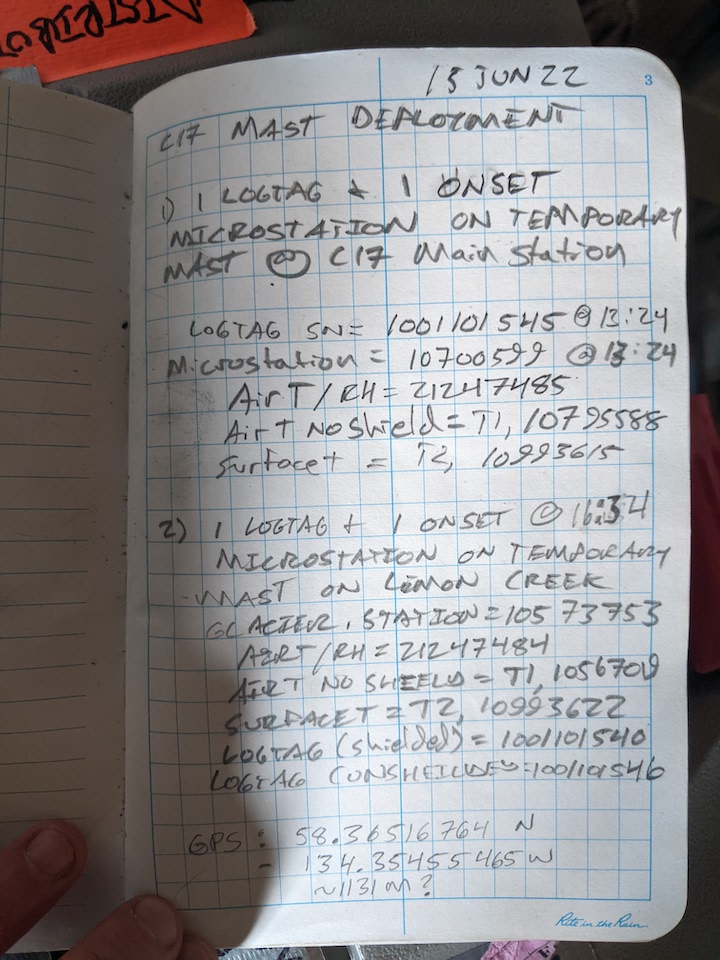 15 JUN 22
3
C17 MAST DEPLOYMENT
1) 1 LOGTAG + 1 ONSET
MICROSTATION ON TEMPORARY
MAST @ C17 Main Station
LOGTAG SN= 1001101545 @ 13:24
Microstation = 10700599 @ 13:24
AirT/RH = 21247485
AirT No Shield = T1, 10795588
Surfacet = T2, 10993615
2) 1 LOGTAG + 1 ONSET @ 16:34
MICROSTATION ON TEMPORARY
MAST ON LEMON CREEK
GLACIER, STATION = 10573753
AIRT/RH = 21247484
AIRT NO SHIELD = T1,
SURFACET = T2, 10993622
LOGTAG (shielded) = 1001101540
LOGTAG = 1001101546
GPS: 58.36516764 N
- 134.35455465 W
~1131 m?
Rite in the Rain